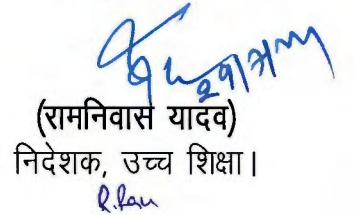 (रामनिवास यादव)
निदेशक, उच्च शिक्षा।